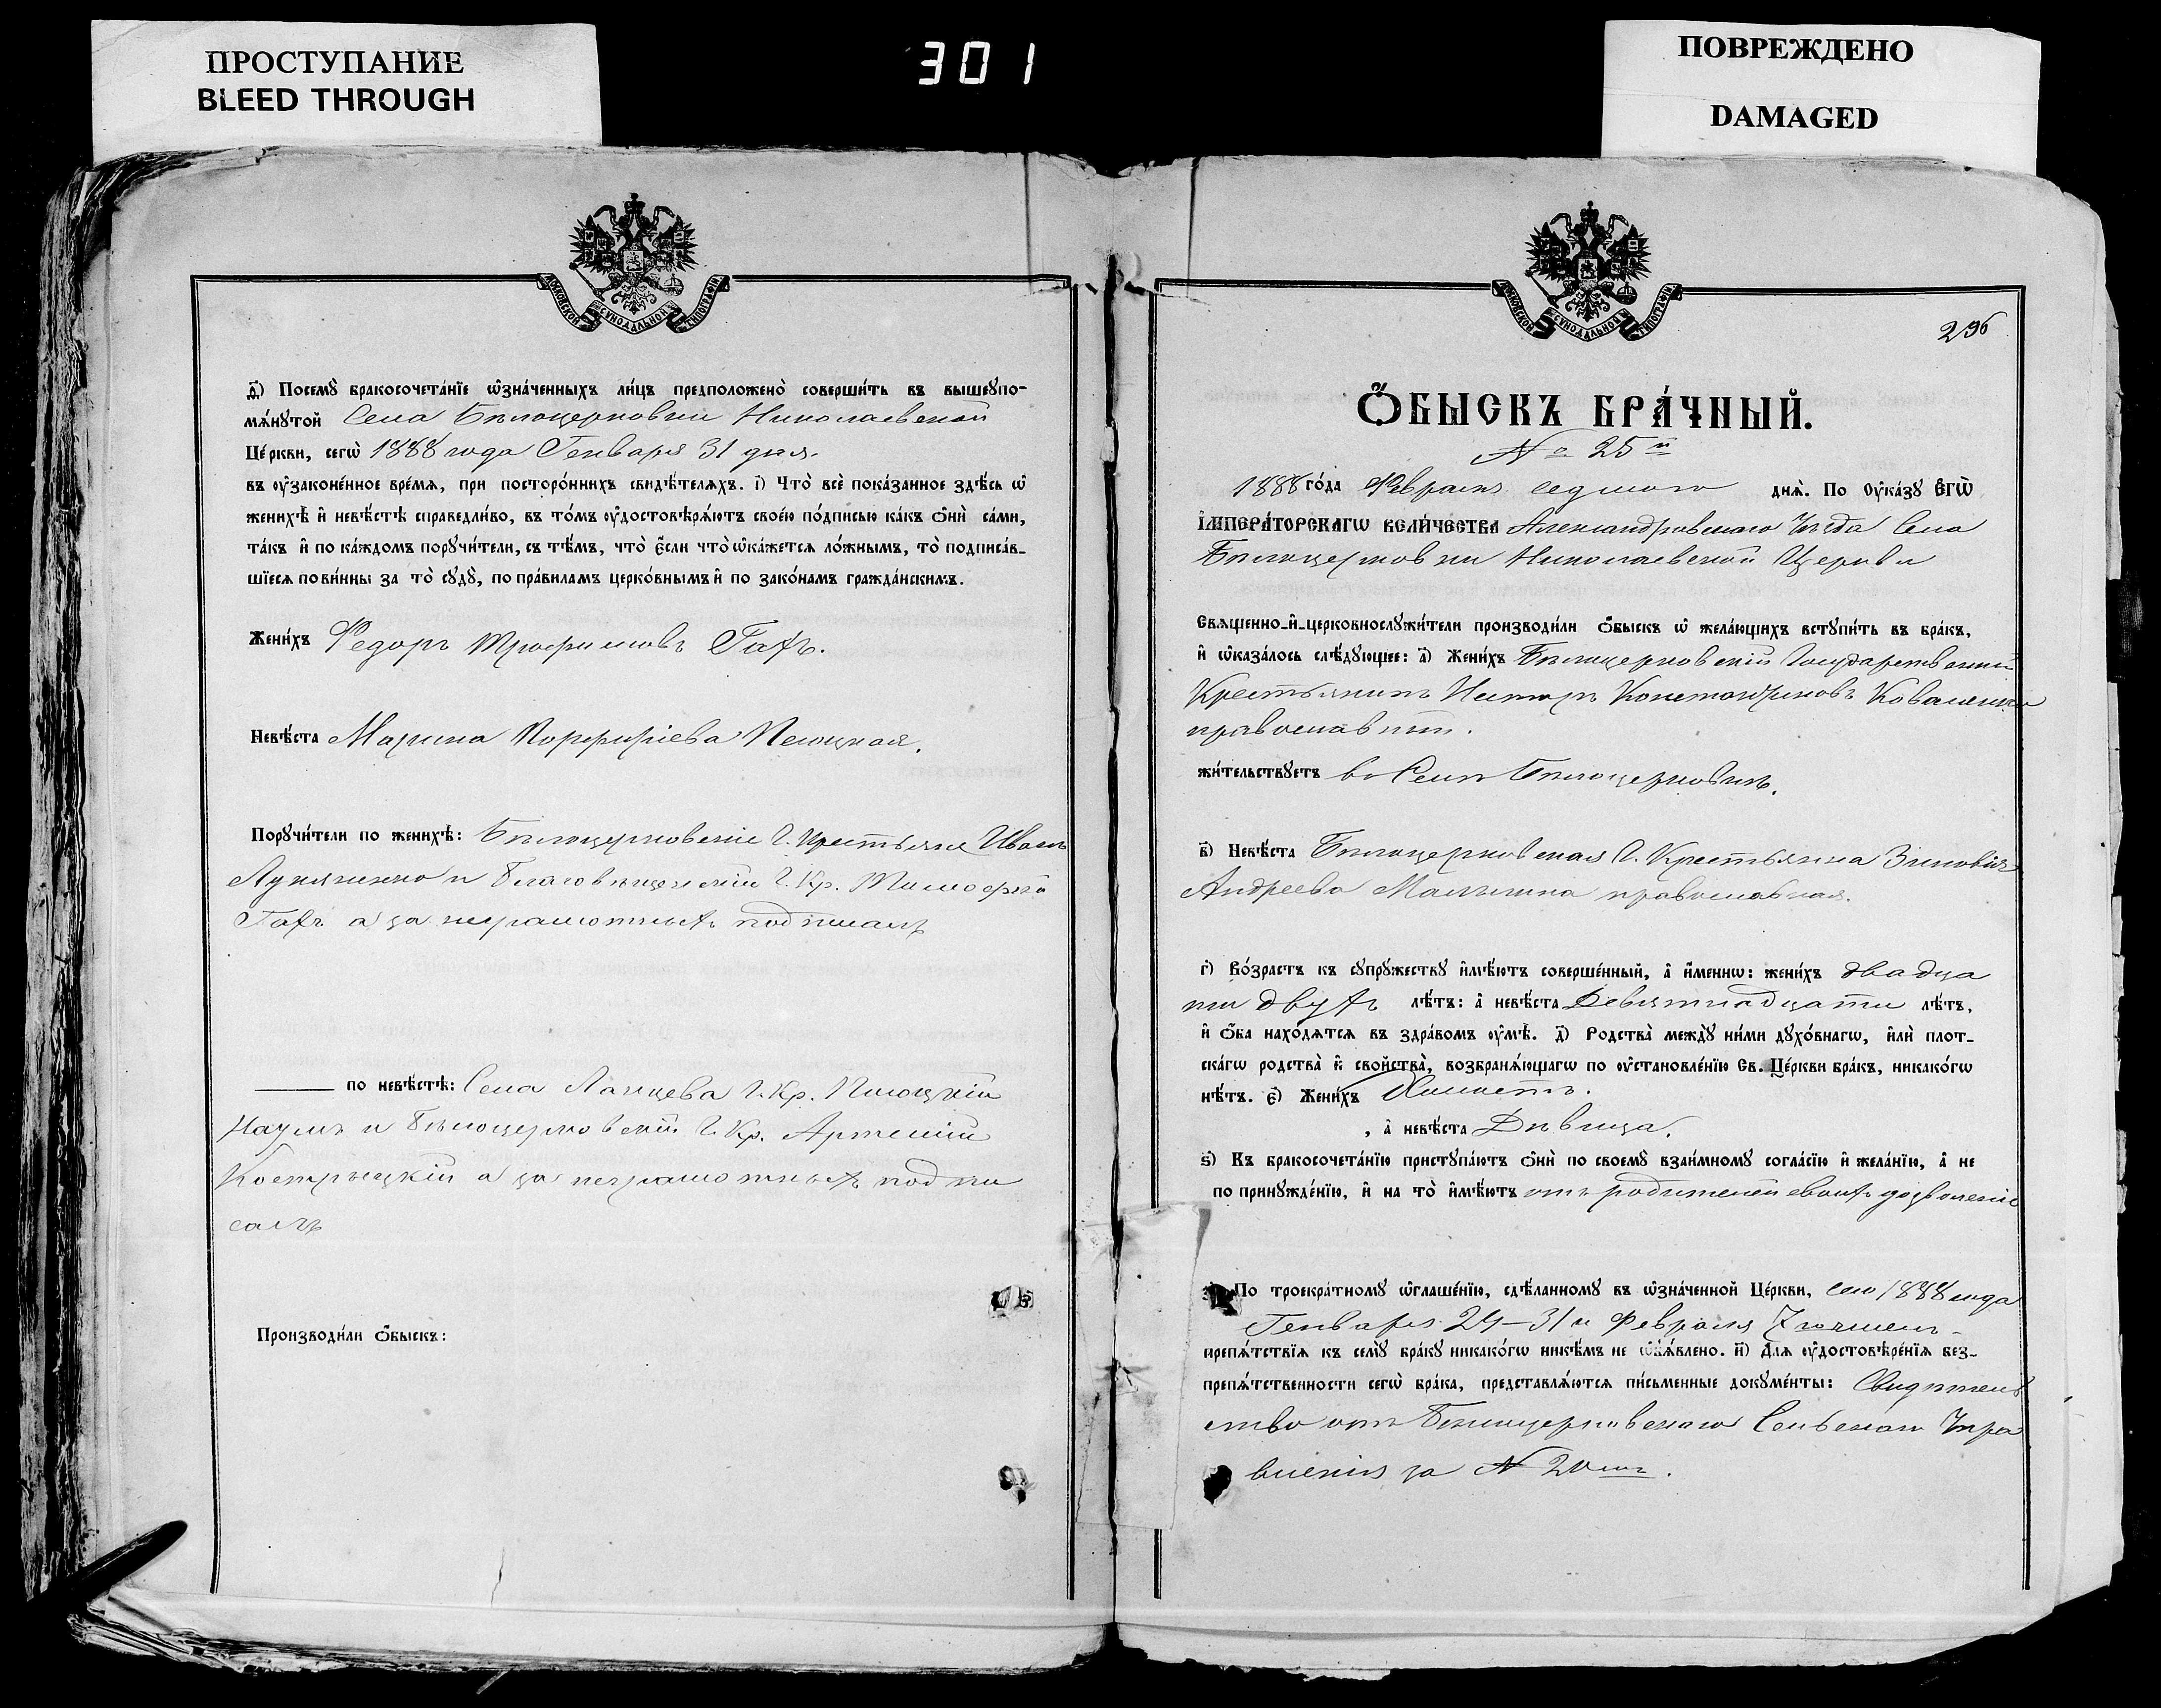 ПРОСТУПАНИЕ
BLEED THROUGH
301
ПОВРЕЖДЕНО
DAMAGED
МОСКОВСКОЙ СѴНОДАЛЬНОЙ ТИПОГРАФІИ
Ѳ҃) Посемꙋ̀ бракосочета́нїе ѡ҆зна́ченныхъ ли́цъ предположено̀ соверши́ть въ вышеꙋпо-
мѧ́нꙋтой Села Бѣлоцерковки Николаевской
Це́ркви, сегѡ̀ 1888 года Генваря 31 дня.
въ ᲂу҆законе́нное вре́мѧ, при посторо́ннихъ свидѣ́телѧхъ. і҃) Что̀ всѐ пока́занное здѣ́сь ѡ҆
женихѣ̀ и҆ невѣ́стѣ справедли́во, въ то́мъ ᲂу҆достовѣрѧ́ютъ свое́ю по́дписью ка́къ ѻ҆нѝ са́ми,
та́къ и҆ по ка́ждомъ порꙋчи́тели, съ тѣ́мъ, что̀ є҆́сли что̀ ѡ҆ка́жетсѧ ло́жнымъ, то̀ подписа́в-
шїесѧ пови́нны за то̀ сꙋдꙋ̀, по пра́виламъ церко́внымъ и҆ по зако́намъ гражда́нскимъ.
Жени́хъ Федоръ Трофимовъ Гахъ.
Невѣ́ста Марина Порфиріева Пслоцкая.
Порꙋчи́тели по женихѣ̀: Бѣлоцерковскіе Г. Крестьяне Иванъ
Лукяненко и Благовѣщенскій Г. Кр. Тимофей
Гахъ а за неграмотныхъ подписалъ
по невѣ́стѣ: Села Ланцева Г. Кр. Пслоцкій
Наумъ и Бѣлоцерковскій Г. Кр. Артемій
Кострыцкій а за неграмотныхъ подпи
салъ
Производи́ли ѻ҆́быскъ:
МОСКОВСКОЙ СѴНОДАЛЬНОЙ ТИПОГРАФІИ
296
Ѻ҆́БЫСКЪ БРА́ЧНЫЙ.
№ 25й
1888 го́да Февраля седмого днѧ̀. По ᲂу҆ка́зꙋ Є҆ГѠ̀
І҆МПЕРА́ТОРСКАГѠ ВЕЛИ́ЧЕСТВА Александровскаго Уѣзда Села
Бѣлоцерковки Николаевской Церкви
Свѧщенно-и҆-церковнослꙋжи́тели производи́ли ѻ҆́быскъ ѡ҆ жела́ющихъ встꙋпи́ть въ бра́къ,
и҆ ѡ҆каза́лось слѣ́дꙋющее: а҃) Жени́хъ Бѣлоцерковскій Государственный
Крестьянинъ Несторъ Константиновъ Коваленко
православный.
жи́тельствꙋетъ въ Селѣ Бѣлоцерковкѣ.
в҃) Невѣ́ста Бѣлоцерковская Г. Крестьянка Зиновія
Андреева Малышка православная.
г҃) Во́зрастъ къ сꙋпрꙋ́жествꙋ и҆мѣ́ютъ соверше́нный, а҆ и҆́меннѡ: жени́хъ двадца
ти двухъ лѣ́тъ: а҆ невѣ́ста Девятнадцати лѣ́тъ,
и҆ ѻ҆́ба нахо́дѧтсѧ въ здра́вомъ ᲂу҆мѣ̀. д҃) Родства̀ междꙋ̀ ни́ми дꙋхо́внагѡ, и҆лѝ плот-
ска́гѡ родства̀ и҆ сво́йства̀, возбранѧ́ющагѡ по ᲂу҆становле́нїю Св. Це́ркви бра́къ, никако́гѡ
нѣ́тъ. є҃) Жени́хъ Холостъ.
, а҆ невѣ́ста Дѣвица.
ѕ҃) Къ бракосочета́нїю пристꙋпа́ютъ ѻ҆нѝ по своемꙋ̀ взаи́мномꙋ согла́сїю и҆ жела́нїю, а҆ не
по принꙋжде́нїю, и҆ на то̀ и҆мѣ́ютъ отъ родителей своихъ дозволеніе
По троекра́тномꙋ ѡ҆глаше́нїю, сдѣ́ланномꙋ въ ѡ҆зна́ченной Це́ркви, сего 1888 года
Генваря 24–31 и Февраля 7 чиселъ
препѧ́тствїѧ къ семꙋ̀ бра́кꙋ никако́гѡ никѣ́мъ не ѡ҆б̾ѧ́влено. и҃) Длѧ ᲂу҆достовѣре́нїѧ без-
препѧ́тственности сегѡ̀ бра́ка, представлѧ́ютсѧ пи́сьменные докꙋме́нты: Свидѣтель
ство отъ Бѣлоцерковскаго Сельскаго Упра
вленія за № 20мъ.